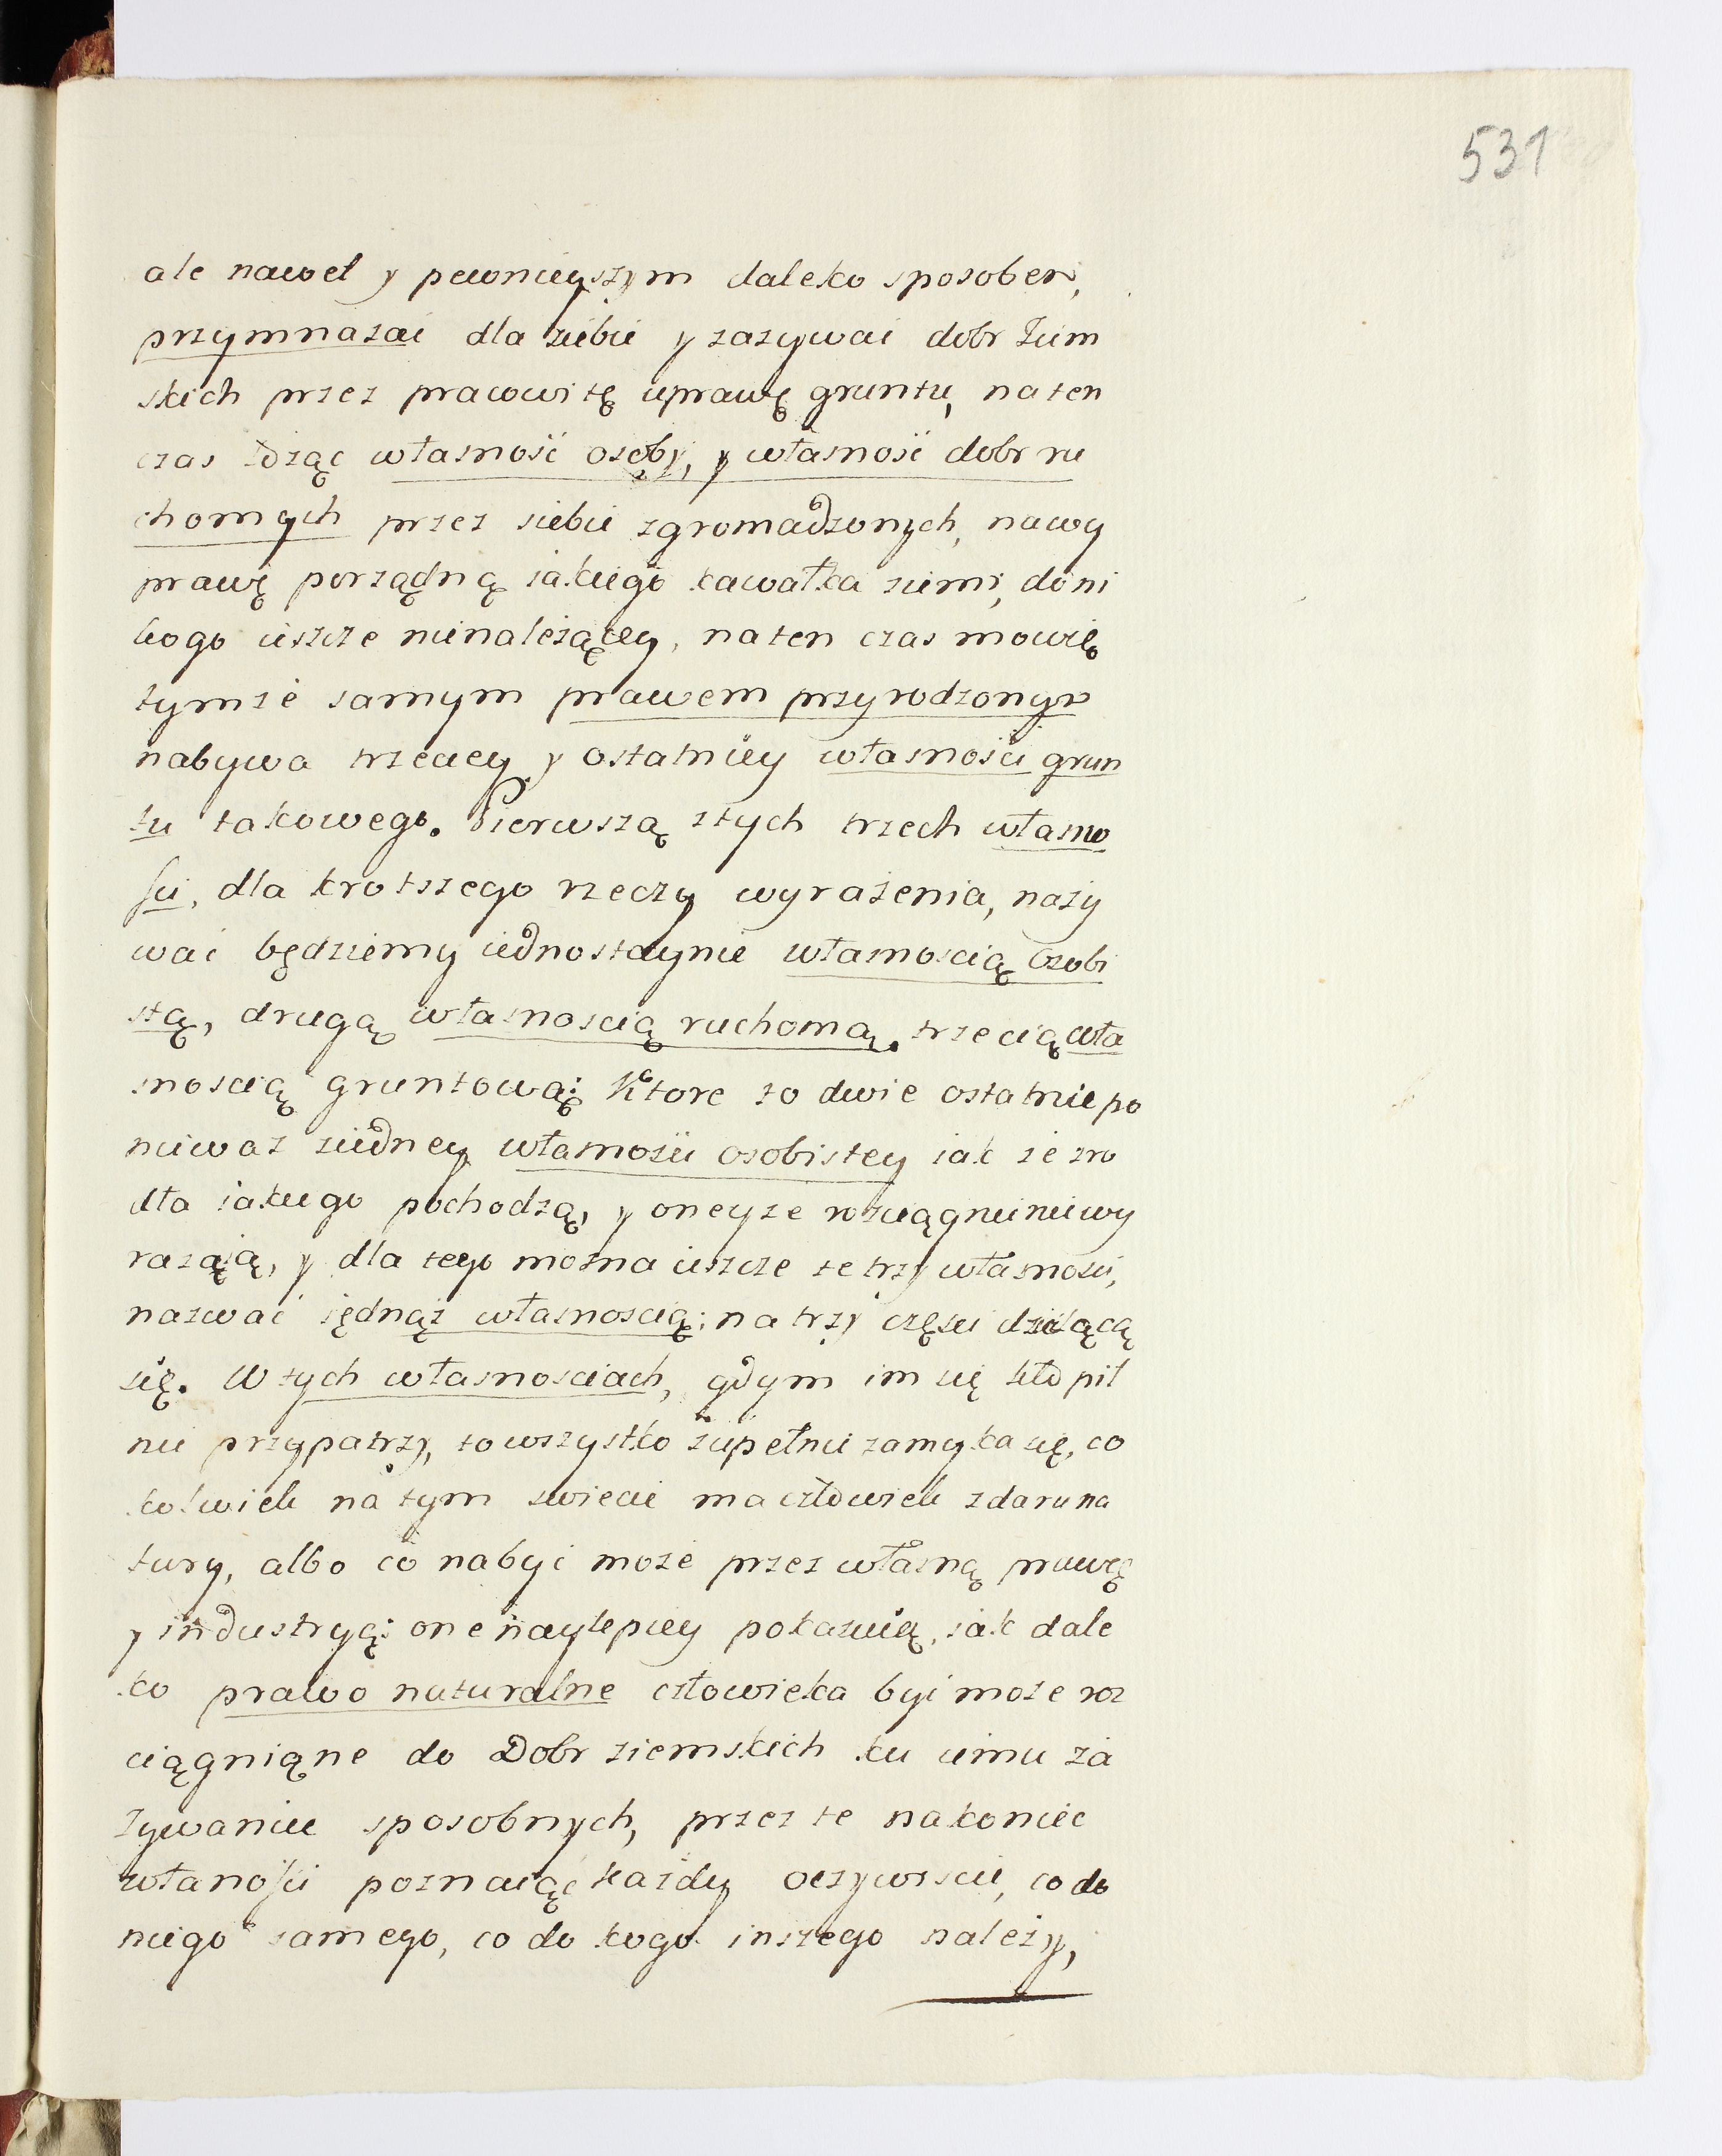 531
ale nawet y pewnieyszym daleko sposobem,
przymnażać dla siebie y zażywać dobr ziem
skich przez pracowitę uprawę gruntu, na ten
czas łożąc własność osoby, y własność dobr ru
chomych przez siebie zgromadzonych, na wy
prawę porządną iakiego kawałka ziemi, do ni
kogo ieszcze nienależącey, na ten czas mowię
tymże samym prawem przyrodzonym
nabywa trzeciey y ostatniey własności grun
tu takowego. Pierwszą z tych trzech własno
ści, dla krotszego rzeczy wyrażenia, nazy
wać będziemy iednostaynie własnoscią osobi
stą, drugą własnoscią ruchomą. trzecią wła
snoscią gruntową: Ktore to dwie ostatnie po
nieważ ziedney własności osobistey iak ze zro
dła iakiego pochodzą, y oneyże rościągnienie wy
rażaią, y dla tego można ieszcze te trzy własności,
nazwać iędnąż własnoscią; na trzy części dzielącą
się. W tych własnosciach, gdym im się kto pil
nie przypatrzy, to wszystko zupełnie zamyka się, co
kolwiek na tym swiecie ma człowiek z daru na
tury, albo co nabyć może przez własną pracę
y industryą: one naylepiey pokazuią, iak dale
ko prawo naturalne człowieka być może roz
ciągnione do Dobr ziemskich ku iemu za
żywaniu sposobnych, przez te nakoniec
właności poznaiąc każdy oczywiscie, co do
niego samego, co do kogo inszego należy,